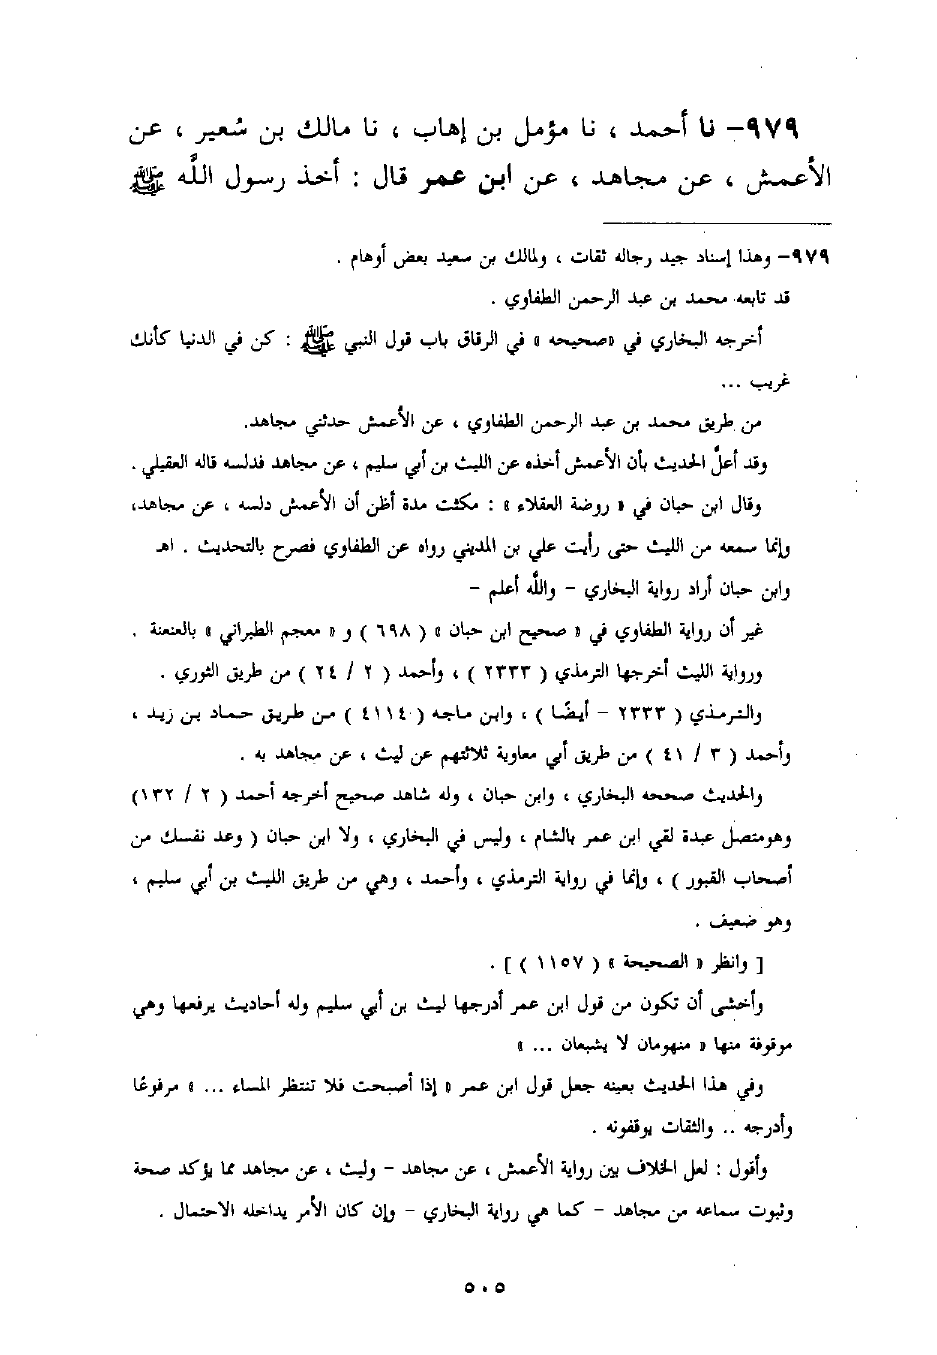 ٩٧٩- نا أحمد ، نا مؤمل بن إهاب ، نا مالك بن سُعير ، عن
الأعمش ، عن مجاهد ، عن ابن عمر قال : أخذ رسول اللَّه ﷺ
٩٧٩- وهذا إسناد جيد رجاله ثقات ، ولمالك بن سعيد بعض أوهام .
قد تابعه محمد بن عبد الرحمن الطفاوي .
أخرجه البخاري في «صحيحه » في الرقاق باب قول النبي ﷺ : كن في الدنيا كأنك
غريب ...
من طريق محمد بن عبد الرحمن الطفاوي ، عن الأعمش حدثني مجاهد.
وقد أعلَّ الحديث بأن الأعمش أخذه عن الليث بن أبي سليم ، عن مجاهد فدلسه قاله العقيلي .
وقال ابن حبان في « روضة العقلاء » : مكثت مدة أظن أن الأعمش دلسه ، عن مجاهد،
وإنما سمعه من الليث حتى رأيت علي بن المديني رواه عن الطفاوي فصرح بالتحديث . اهـ
وابن حبان أراد رواية البخاري - واللَّه أعلم -
غير أن رواية الطفاوي في « صحيح ابن حبان » ( ٦٩٨ ) و « معجم الطبراني » بالعنعنة .
ورواية الليث أخرجها الترمذي ( ٢٣٣٣ ) ، وأحمد ( ٢ / ٢٤ ) من طريق الثوري .
والترمذي ( ٢٣٣٣ - أيضًا ) ، وابن ماجه ( ٤١١٤ ) من طريق حماد بن زيد ،
وأحمد ( ٣ / ٤١ ) من طريق أبي معاوية ثلاثتهم عن ليث ، عن مجاهد به .
والحديث صححه البخاري ، وابن حبان ، وله شاهد صحيح أخرجه أحمد ( ٢ / ١٣٢)
وهومتصل عبدة لقي ابن عمر بالشام ، وليس في البخاري ، ولا ابن حبان ( وعد نفسك من
أصحاب القبور ) ، وإنما في رواية الترمذي ، وأحمد ، وهي من طريق الليث بن أبي سليم ،
وهو ضعيف .
[ وانظر « الصحيحة » ( ١١٥٧ ) ] .
وأخشى أن تكون من قول ابن عمر أدرجها ليث بن أبي سليم وله أحاديث يرفعها وهي
موقوفة منها « منهومان لا يشبعان ... »
وفي هذا الحديث بعينه جعل قول ابن عمر « إذا أصبحت فلا تنتظر المساء ... » مرفوعًا
وأدرجه .. والثقات يوقفونه .
وأقول : لعل الخلاف بين رواية الأعمش ، عن مجاهد - وليث ، عن مجاهد مما يؤكد صحة
وثبوت سماعه من مجاهد - كما هي رواية البخاري - وإن كان الأمر يداخله الاحتمال .
٥٠٥